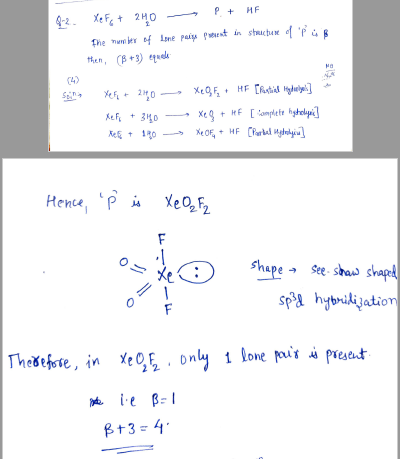 Q-2. XeF₆ + 2H₂O ⟶ P + HF
The number of lone pairs present in structure of 'P' is β
then, (β+3) equals
(4)
Soln→ XeF₆ + 2H₂O ⟶ XeO₂F₂ + HF [Partial Hydrolysis]
XeF₆ + 3H₂O ⟶ XeO₃ + HF [Complete hydrolysis]
XeF₆ + 1H₂O ⟶ XeOF₄ + HF [Partial Hydrolysis]
Hence, 'P' is XeO₂F₂
F
O
Xe :
O
F
shape → see-shaw shaped
sp³d hybridization
Therefore, in XeO₂F₂, only 1 lone pair is present.
i.e β=1
β+3 = 4.